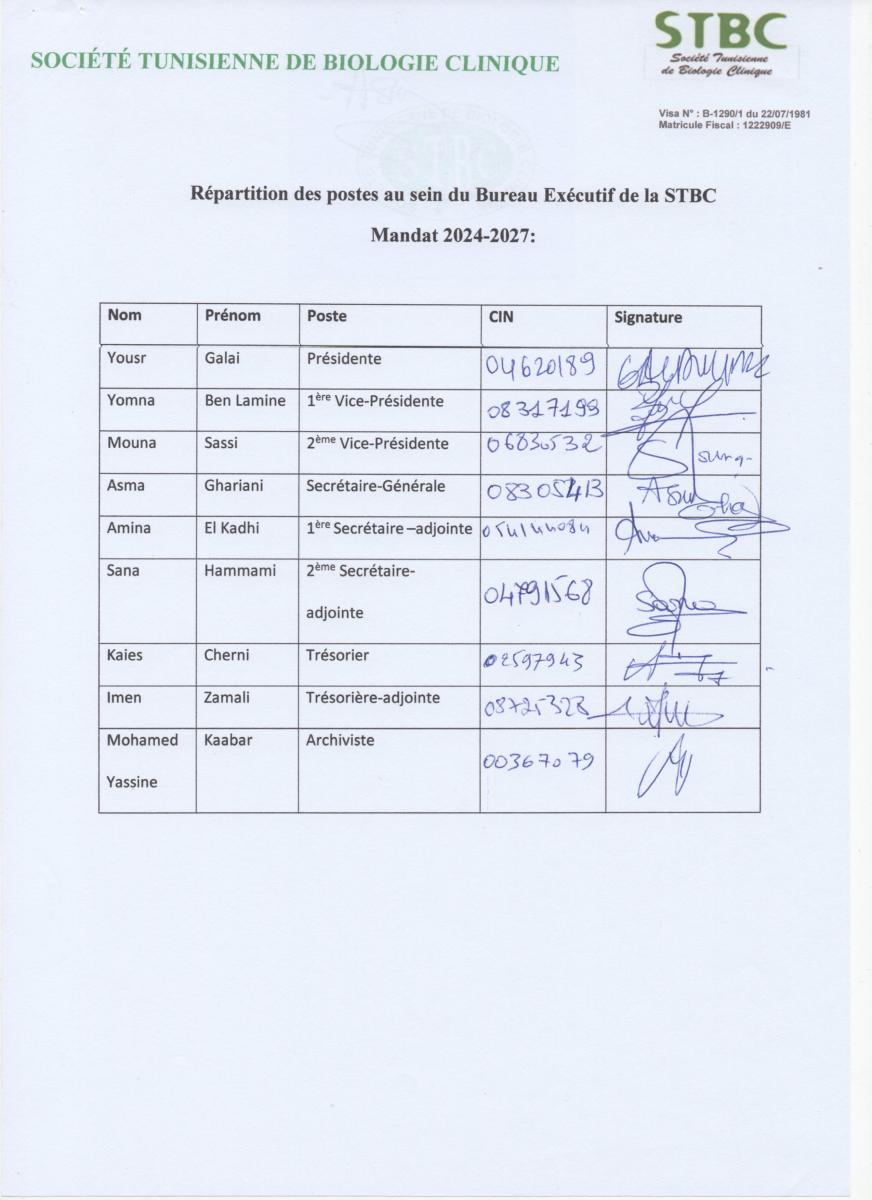 SOCIÉTÉ TUNISIENNE DE BIOLOGIE CLINIQUE
STBC
Société Tunisienne
de Biologie Clinique
Visa N° : B-1290/1 du 22/07/1981
Matricule Fiscal : 1222909/E
Répartition des postes au sein du Bureau Exécutif de la STBC
Mandat 2024-2027:
Nom Prénom Poste CIN Signature
Yousr Galai Présidente 04620189
Yomna Ben Lamine 1ère Vice-Présidente 08317199
Mouna Sassi 2ème Vice-Présidente 06830532
Asma Ghariani Secrétaire-Générale 08305413
Amina El Kadhi 1ère Secrétaire –adjointe
Sana Hammami 2ème Secrétaire-
adjointe 04791568
Kaies Cherni Trésorier 02597943
Imen Zamali Trésorière-adjointe
Mohamed Kaabar Archiviste 00367079
Yassine